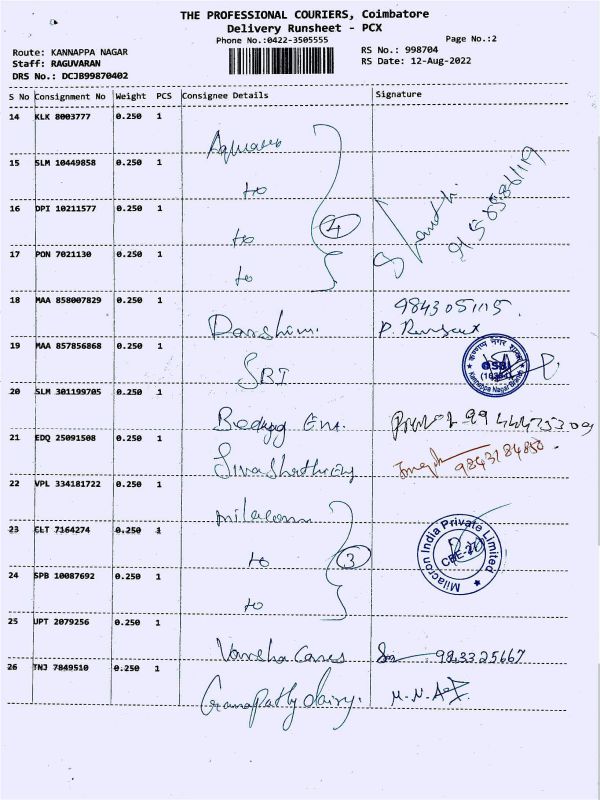 THE PROFESSIONAL COURIERS, Coimbatore
Delivery Runsheet - PCX
Phone No.:0422-3505555
Page No.:2
Route: KANNAPPA NAGAR
RS No.: 998704
Staff: RAGUVARAN
RS Date: 12-Aug-2022
DRS No.: DCJB99870402
S No Consignment No Weight PCS Consignee Details Signature
14 KLK 8003777 0.250 1
15 SLM 10449858 0.250 1
to
16 DPI 10211577 0.250 1
to
4
17 PON 7021130 0.250 1
to
18 MAA 858007829 0.250 1
Darshini. 9843051115.
19 MAA 857856868 0.250 1
SBI
20 SLM 301199705 0.250 1
21 EDQ 25091508 0.250 1
22 VPL 334181722 0.250 1
milacron
23 CLT 7164274 0.250 1
to
3
Milacron India Private Limited
24 SPB 10087692 0.250 1
to
25 UPT 2079256 0.250 1
Varsha Cares 9843325667
26 TNJ 7849510 0.250 1
Ganapathy dairy.